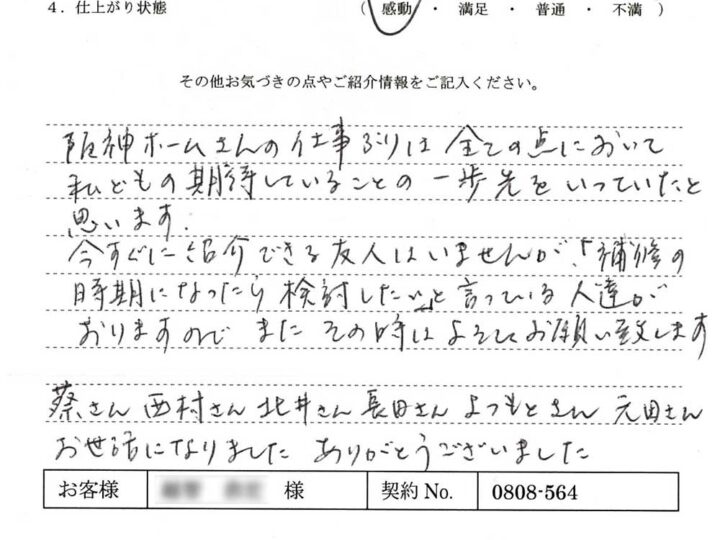 4．仕上がり状態 （ 感動 ・ 満足 ・ 普通 ・ 不満 ）
その他お気づきの点やご紹介情報をご記入ください。
阪神ホームさんの仕事ぶりは全ての点において
私どもの期待していることの一歩先をいっていたと
思います.
今すぐに紹介できる友人はいませんが、「補修の
時期になったら検討したい」と言っている人達が
おりますので またその時はよろしくお願い致します
蔡さん 西村さん 北井さん 長田さん よつもとさん 元田さん
お世話になりました ありがとうございました
お客様 様 契約 No. 0808-564